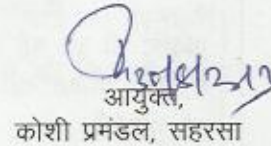 आयुक्त,
कोशी प्रमंडल, सहरसा